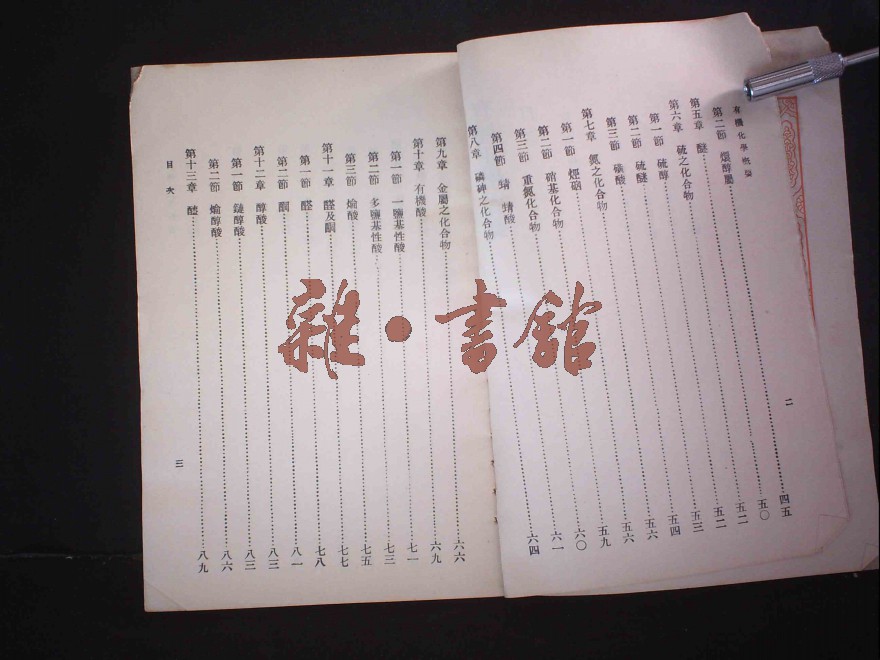 有機化學概要
二
第二節 烷醇屬 四五
第五章 醚 五〇
第六章 硫之化合物 五二
第一節 硫醇 五二
第二節 硫醚 五三
第三節 磺酸 五四
第七章 氮之化合物 五六
第一節 五六
第二節 硝基化合物 五九
第三節 重氮化合物 六〇
第四節 六一
第八章 磷砷之化合物 六四
第九章 金屬之化合物 六六
第十章 有機酸 六九
第一節 一鹽基性酸 七一
第二節 多鹽基性酸 七三
第三節 七五
第十一章 醛及酮 七七
第一節 醛 七八
第二節 酮 八一
第十二章 醇酸 八三
第一節 鏈醇酸 八三
第二節 醇酸 八六
第十三章 八九
目次
三
雜·書館